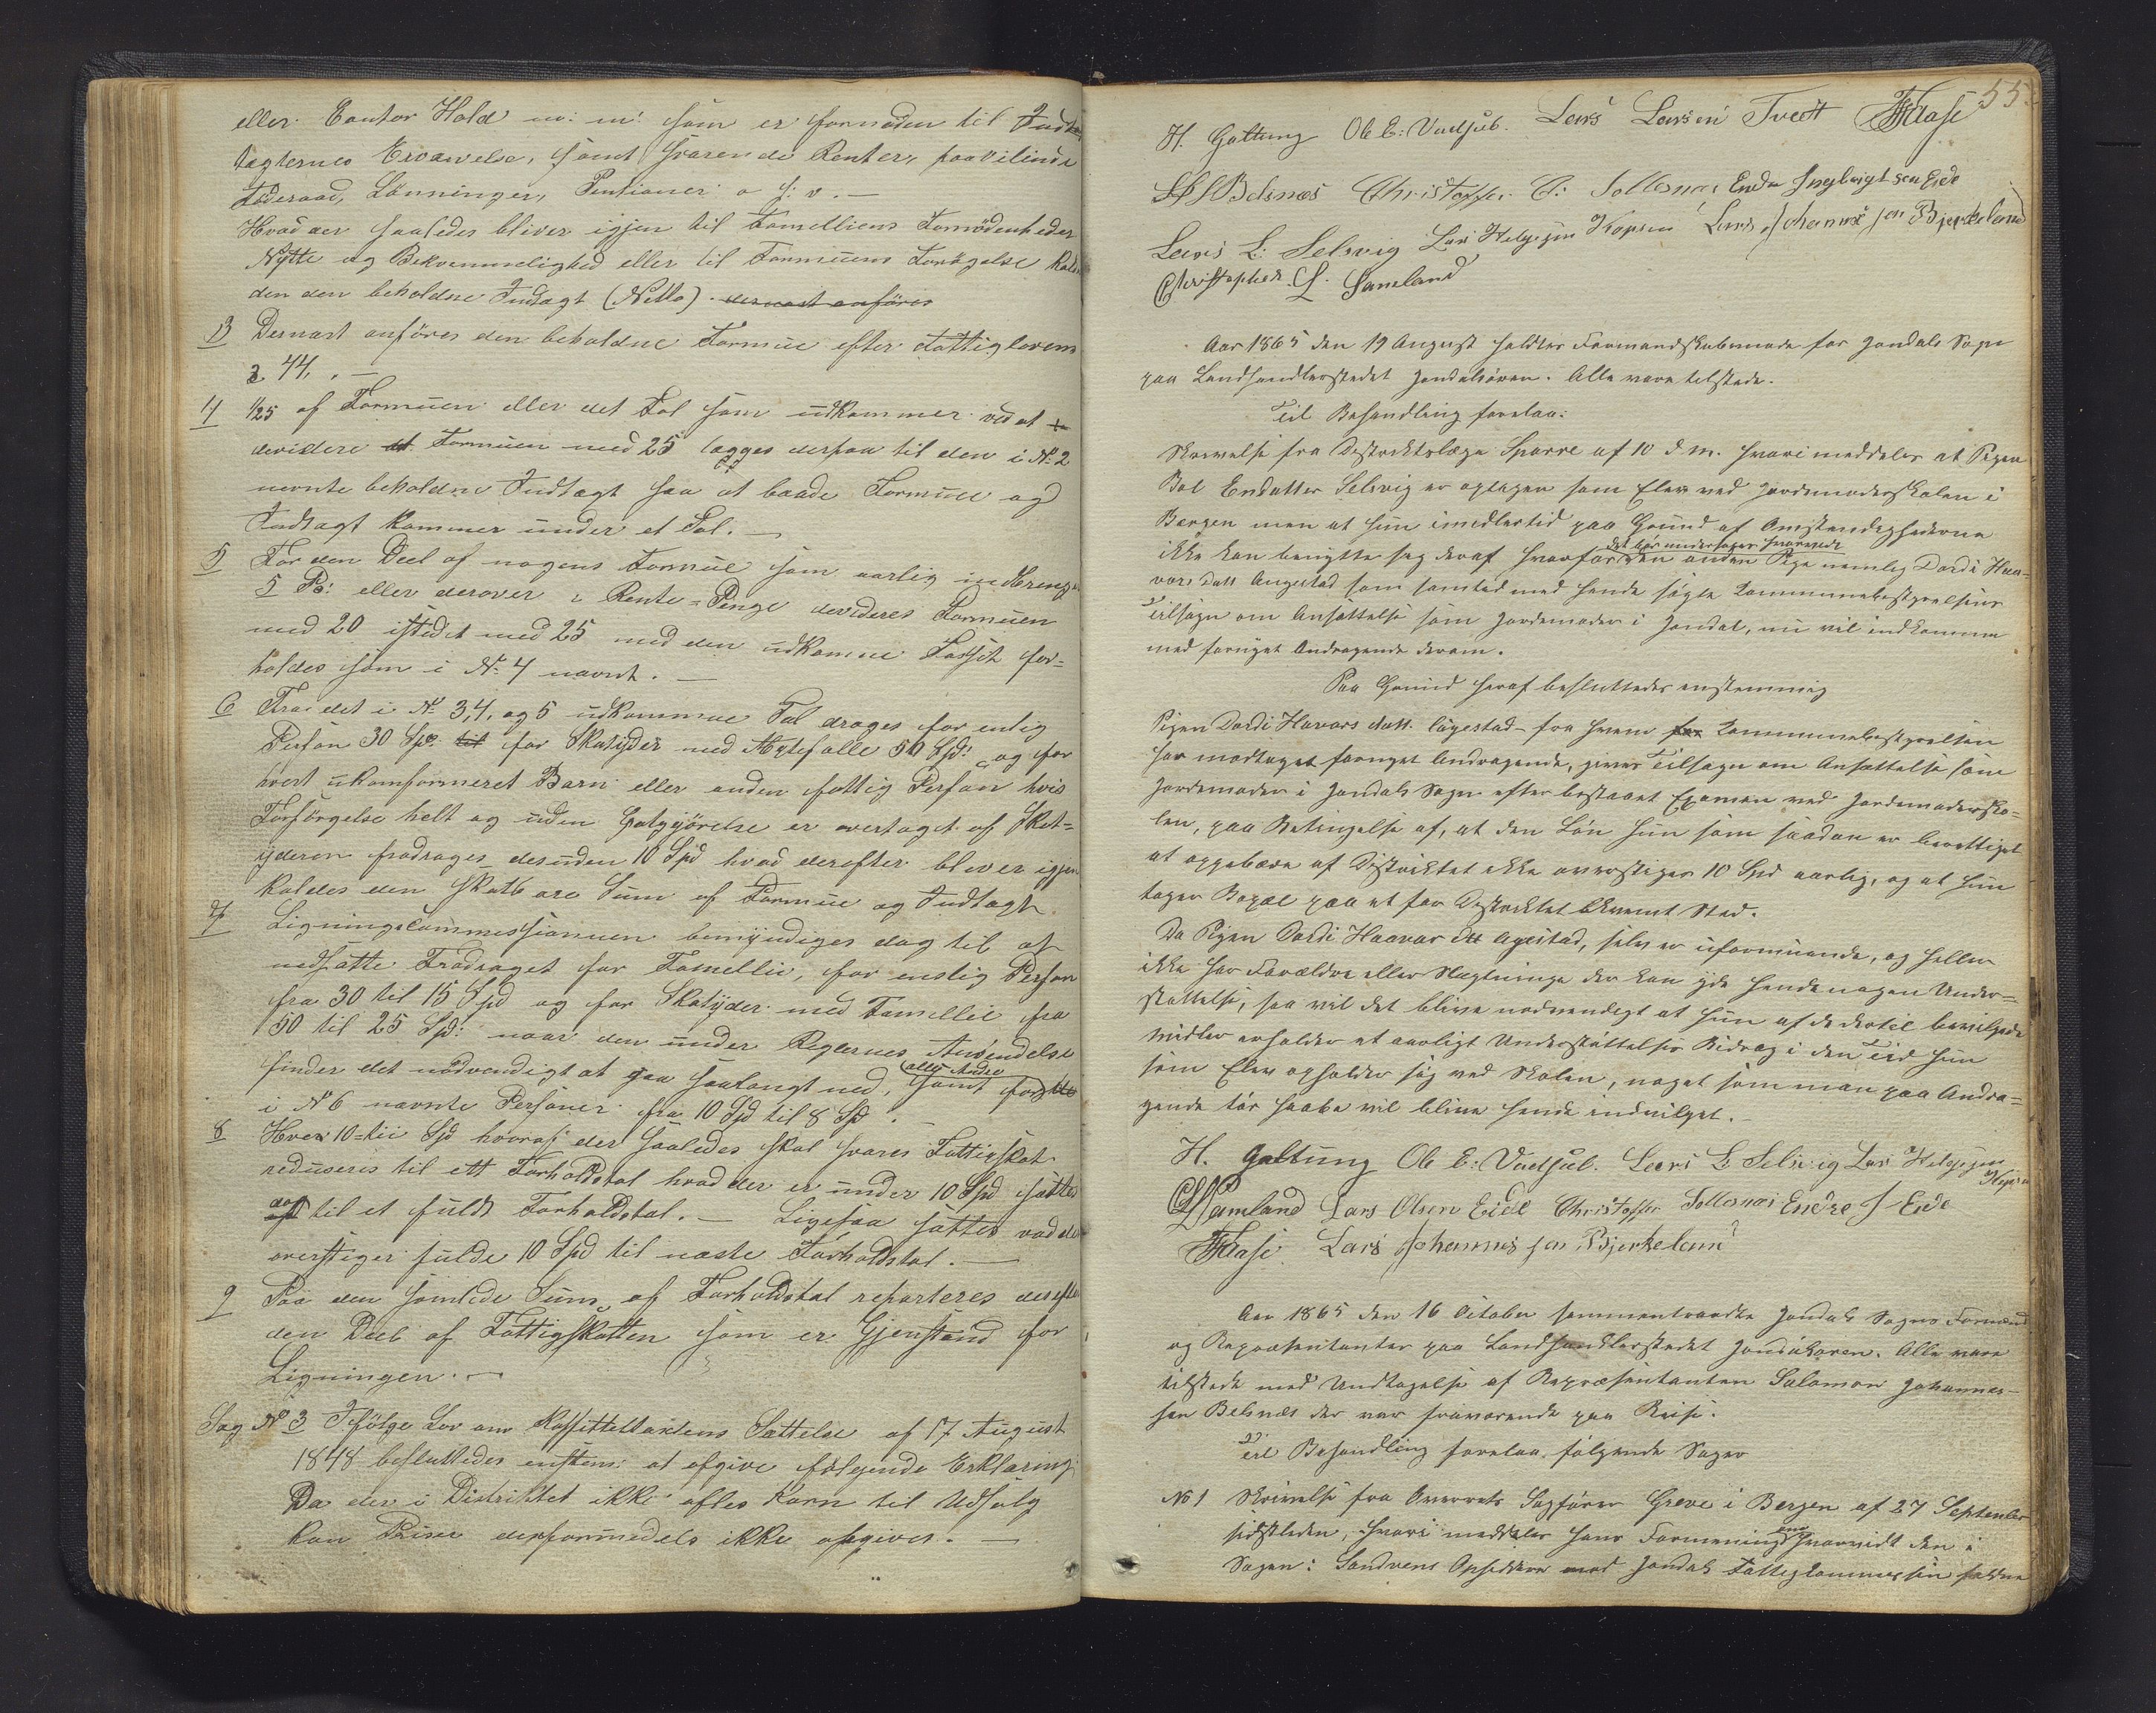 eller Contor Hold m: m: som er fornøden til Indtæ
tægternes Ervævelse, samt svarende Renter, paavilende
Føderaad, Lønninger, Pentioner o s: v. —
Hvad der saaledes bliver igjen til Familliens Fornødenheder
Nytte og Bekvemmelighed eller til Formuens Forøgelse kal
den den beholdne Indtægt (Netto). dernæst anføres
3 Dernæst anføres den beholdne Formue efter Fattiglovens
§ 44. . —
4 1/25 af Formuen eller det Tal som udkommer ved at
devidere Formuen med 25 lægges derpaa til den i No 2
nevnte beholdne Indtægt saa at baade Formue og
Indtægt kommer under et Tal. —
5 For den Deel af nogens Formue som aarlig indbringe
5 Pc: eller derover i Rente-Penge devideres Formuen
med 20 istedet med 25 med den udkomne Facsit for-
holdes som i No 4 nævnt. —
6 Fra det i No 3, 4, og 5 udkomne Tal drages for enlig
Person 30 Spd. til for Skatyder med Ægtefalle 50 Spd: og for
hvert ukomformeret Barn eller anden fattig Person hvis
Forsørgelse helt og uden Godtgjørelse er overtaget af Skat-
yderen fradrages desuden 10 Spd hvad derefter bliver igjen
kaldes den skatbare Sum af Formue og Indtægt
7 Ligningscommissionen bemyndiges dog til at
nedsætte Fradraget for Famellie, for enslig Person
fra 30 til 15 Spd og for Skatyder med Famellie fra
50 til 25 Spd: naar den under Reglernes Anvendelse
finder det nødvendigt at gaa saalangt ned, samt for
alle Andre
i No 6 nævnte Personer fra 10 Spd til 8 Spd. —
8 Hver 10-tii Spd hvoraf der saaledes skal svares Fattigskat
reduseres til ett Forholdstal hvad der er under 10 Spd sættes
og til et fuldt Forholdstal. — Ligesaa sættes vad der
overstiger fulde 10 Spd til næste Forholdstal. —
9 Paa den samlede Sum af Forholdstal reparteres derefter
den Deel af Fattigskatten som er Gjenstand for
Ligningen. —
Sag No 3 Ifølge Lov om Kapitteltaktens Sættelse af 17 August
1848 besluttedes enstem: at afgive følgende Erklæring
Da der i Distriktet ikke afles Korn til Udsalg
kan Priser derformedels ikke afgives. —
55.
H. Galtung Ole E: Vadsub. Lars Larsen Tvedt
Belsnæs Christoffer C: Solles næs Endre Ingebrigtsen Eide
Lars L: Selsvig Lars Helgesen Lars Johannes sen Bjerkeland
Christopher L. Samland
Aar 1865 den 19 August holdtes Formandskabsmøde for Jondals Sogn
paa Landhandlerstedet Jondalsøren. Alle vare tilstede.
Til Behandling forelaa:
Skrivelse fra Districtslæge Sparre af 10 d. m. hvori meddeles at Pigen
Bol Endatter Selsvig er optagen som Elev ved Jordemoderskolen i
Bergen men at hun imidlertid paa Grund af Omstændighederne
ikke kan benytte sig deraf hvorfor den anden Pige nemlig Dordi Haa-
det bør undersøges hvorvidt
vors datt Augestad som samtid med hende søgte Kommunebestyrelsens
Tilsagn om Ansættelse som Jordemoder i Jondal, nu vil indkomme
med fornyet Andragende derom.
Paa Grund heraf besluttedes enstemmig
Pigen Dordi Haavars datt. Augestad – fra hvem Kommunebestyrelsen
har modtaget fornyet Andragende, gives Tilsagn om Ansættelse som
Jordemoder i Jondals Sogn efter bestaaet Examen ved Jordemodersko-
len, paa Betingelse af, at den Løn hun som saadan er berettiget
at oppebære af Distriktet ikke overstiger 10 Spd aarlig, og at hun
tager Bopæl paa et for Distriktet bekvemt Sted.
Da Pigen Dordi Haavar dtt Agestad, selv er uformuende, og heller
ikke har Forældre eller Slægtninge der kan yde hende nogen Under-
støttelse, saa vil det blive nødvendigt at hun af de dertil bevilgede
Midler erholder et aarligt Understøttelses Bidrag i den Tid hun
som Elev opholder sig ved Skolen, noget som man paa Andra-
gende tør haabe vil blive hende indvilget. —
H. Galtung Ole E: Vadsub. Lars L Selsvig Lars Helgesen
Samland Lars Olsen Eide Christoffer Sollesnæs Endre I Eide
Lars Johannes sen Bjerkeland
Aar 1865 den 16 October sammentraadte Jondals Sogns Formænd
og Repræsentanter paa Landhandlerstedet Jondalsøren. Alle vare
tilstede med Undtagelse af Repræsentanten Salomon Johannes-
sen Belsnæs der var fraværende paa Reise.
Til Behandling forelaa følgende Sager
No 1 Skrivelse fra Overrets Sagfører Greve i Bergen af 27 September
sidstleden, hvori meddeles hans Formening om hvorvidt den i
Sagen: Sandvens Opsiddere mod Jondals Fattigkommission faldne